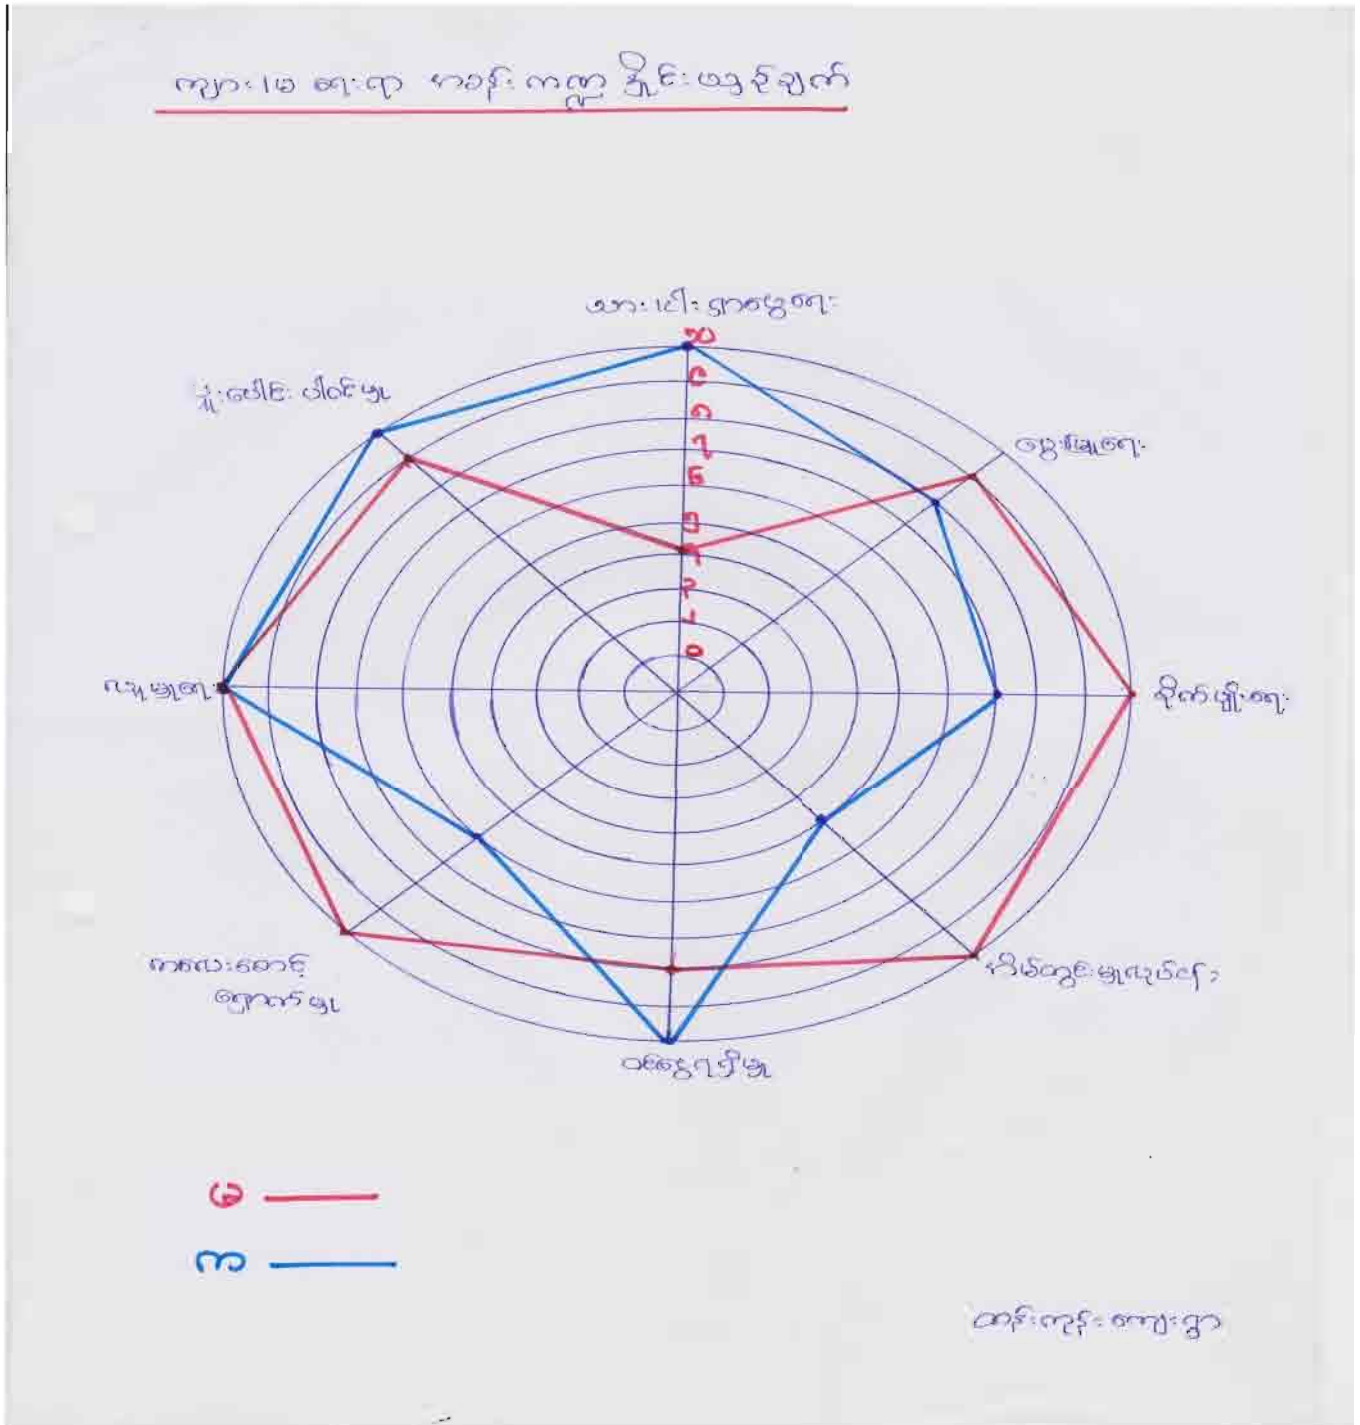 ကျား/မ ရေးရာ အခန်းကဏ္ဍ နှိုင်းယှဉ်ချက်
သား၊ငါး ရှာဖွေရေး
၁၀
၉
၈
၇
၆
၅
၄
၃
၂
၁
မွေးမြူရေး
စိုက်ပျိုးရေး
အိမ်တွင်းမှုလုပ်ငန်း
ဝင်ငွေရရှိမှု
ကလေးစောင့်
ရှောက်မှု
လူမှုရေး
ပူးပေါင်း ပါဝင်မှု
မ
က
ထန်းကုန်း ကျေးရွာ